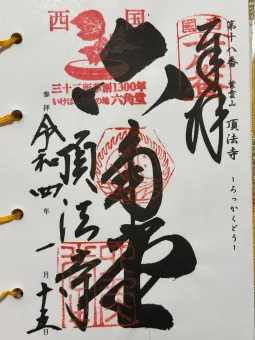 第十八番 紫雲山 頂法寺 ーろっかくどうー
奉拝
西国
1300年
いけば
の地 六角堂
六角堂
頂法寺
参拝 令和四年一月十五日